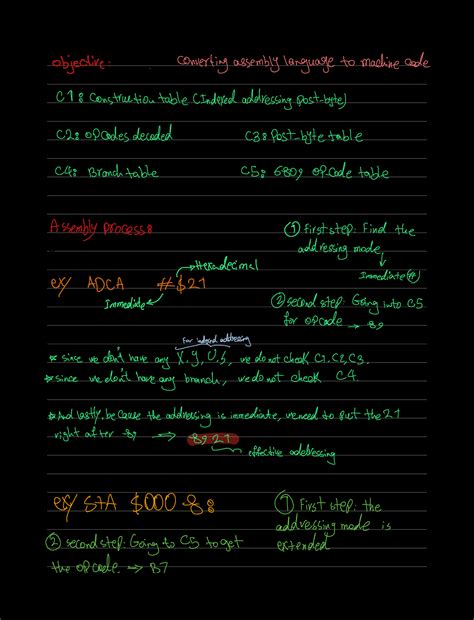 objective: Converting assembly language to machine code
C1: Construction table (Indexed addressing post-byte)
C2: opcodes decoded C3: Post-byte table
C4: Branch table C5: 6809 opcode table
Assembly process:
① first step: Find the
addressing mode
Immediate (#)
Hexadecimal
ex/ ADCA #$21
Immediate
② second step: Going into C5
for opcode → 89
For indexed addressing
* since we don't have any X, Y, U, S, we do not check C1, C2, C3.
* since we don't have any branch, we do not check C4.
* And lastly, because the addressing is immediate, we need to put the 21
right after 89 → 89 21
effective addressing
ex/ STA $000 8:
① First step: the
addressing mode is
extended
② second step: Going to C5 to get
the opcode. → B7